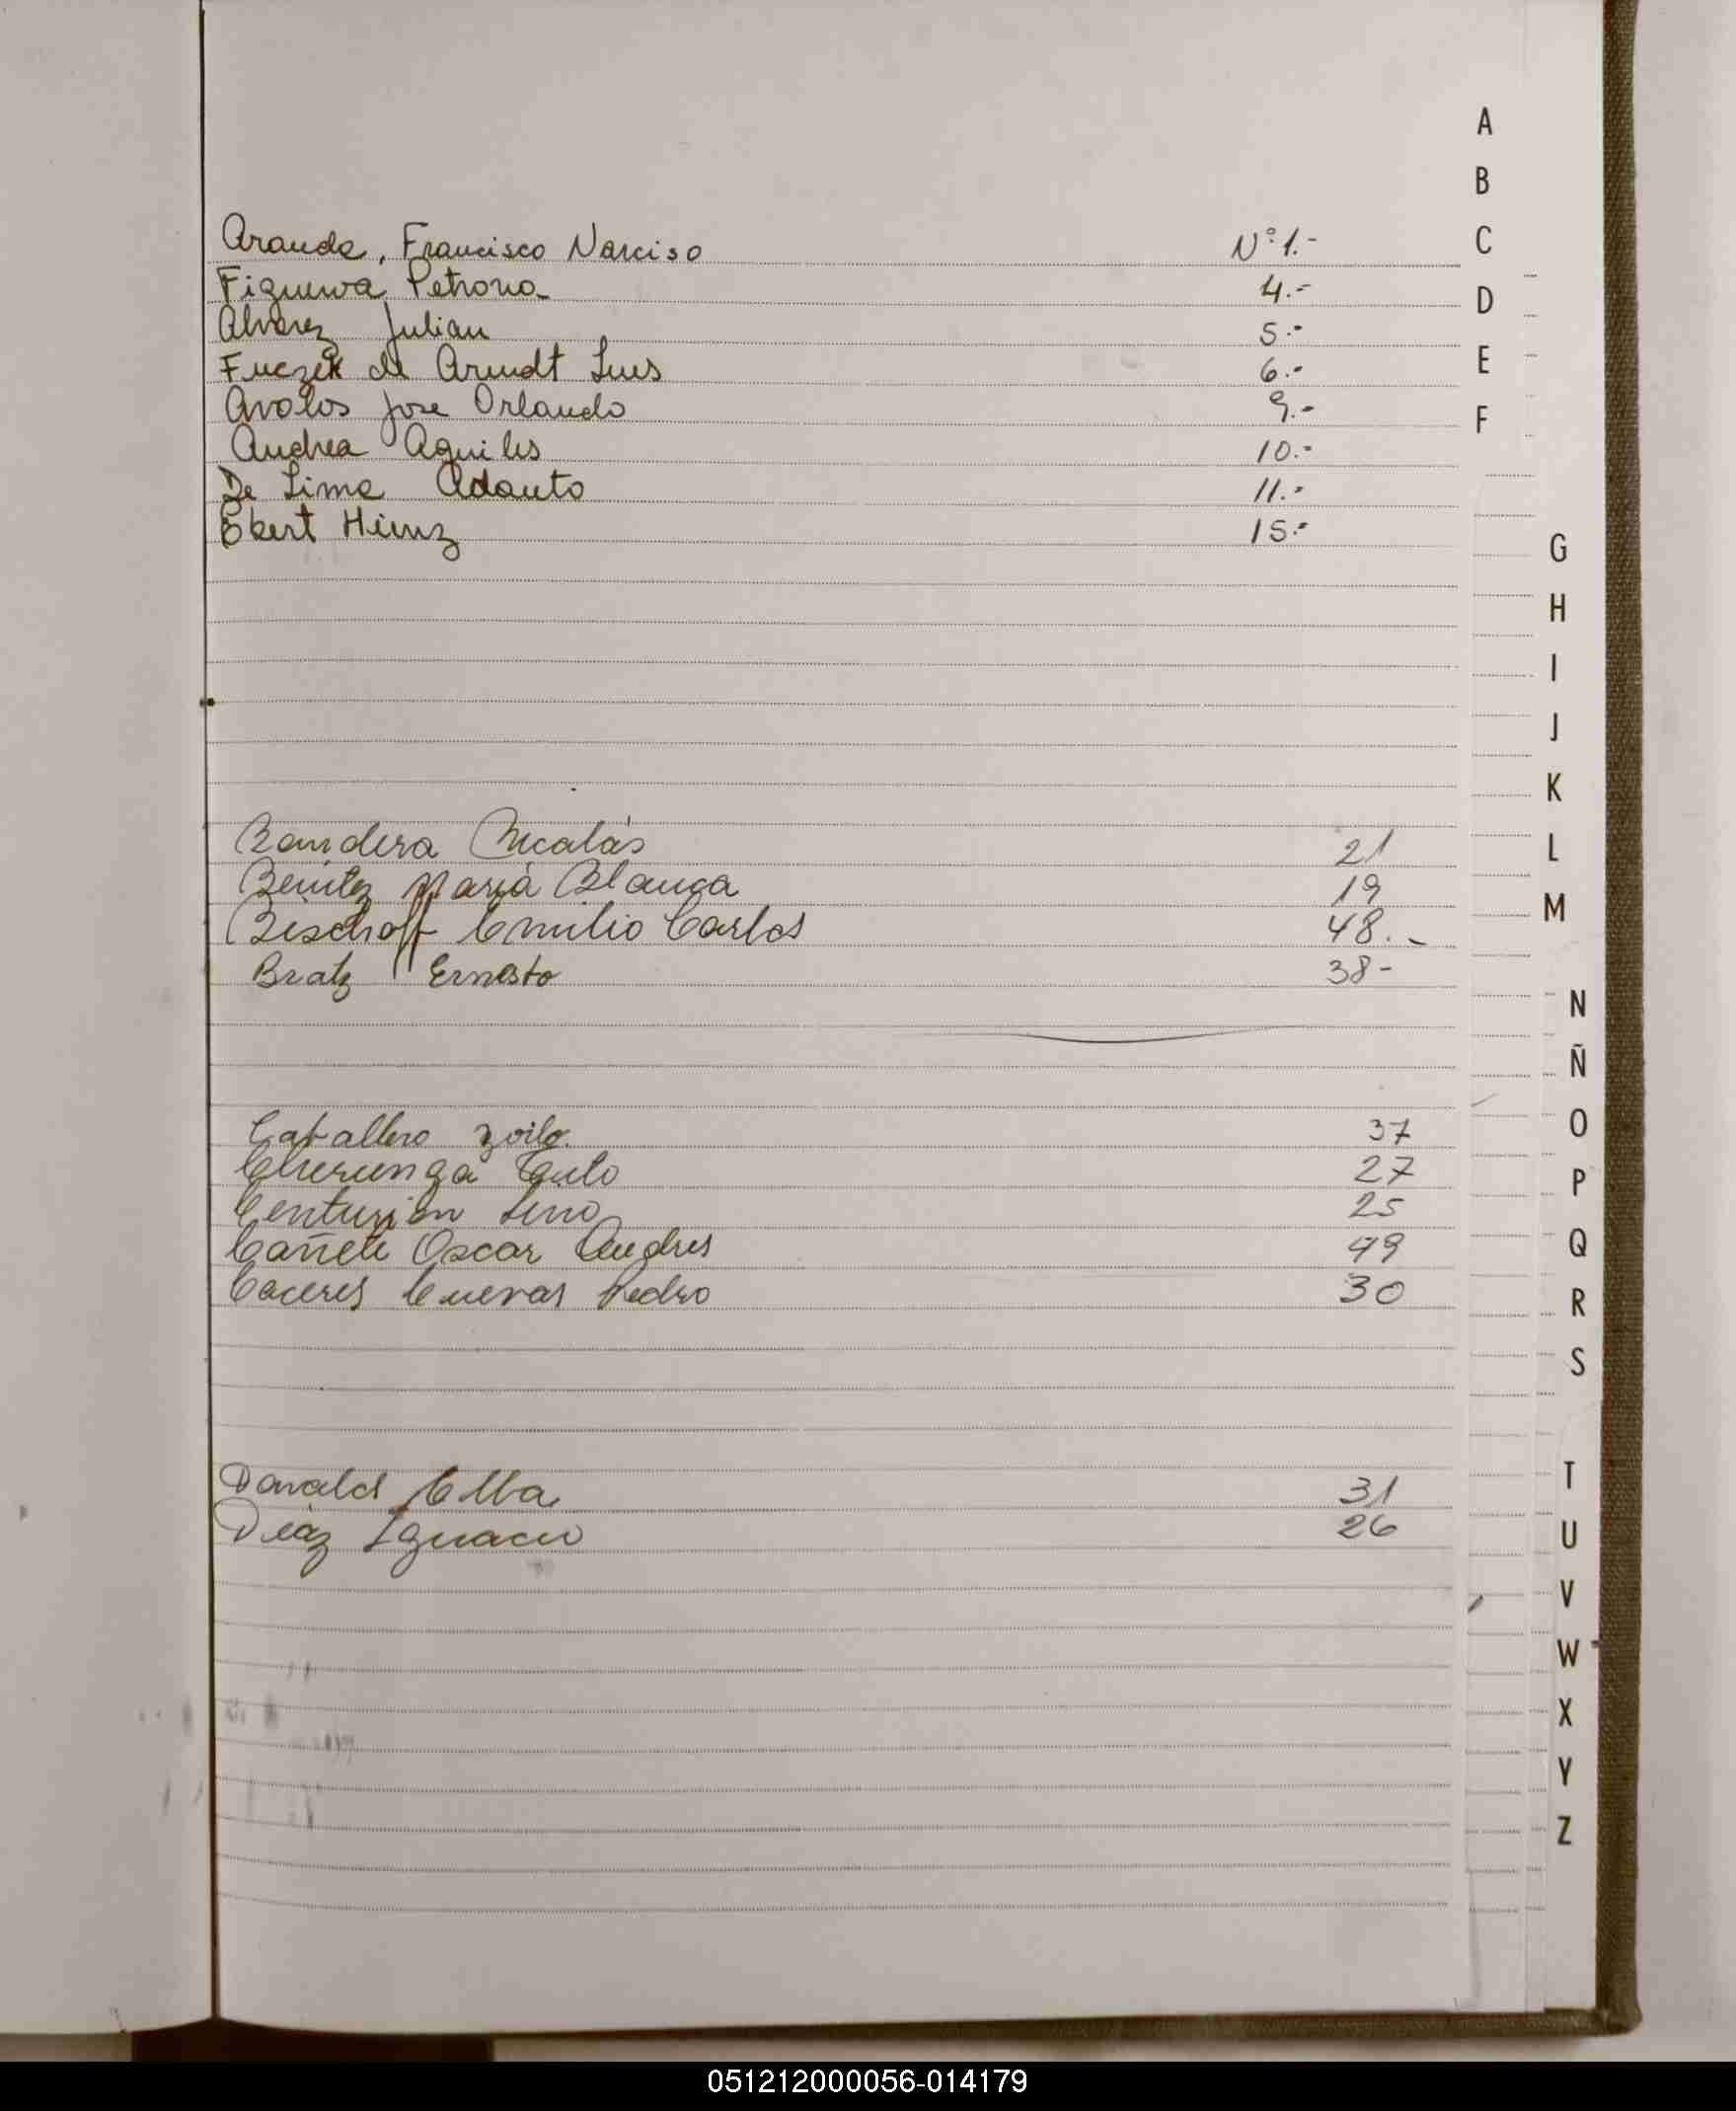 A
B
C
D
E
F
Aranda, Francisco Narciso N° 1.-
Figueroa Petrona 4.-
Alvarez Julian 5.-
de Arndt Luis 6.-
Avalos Jose Orlando 9.-
Andrea Aquiles 10.-
De Lima Adauto 11.-
Ekert Heinz 15.-
G
H
I
J
K
L
M
Bandera Nicolás 21
Benitez María Blanca 19
Bischoff Emilio Carlos 48.-
Bratz Ernesto 38-
N
Ñ
O
P
Q
R
S
Caballero Zoilo 37
27
Centurión Lino 25
Cañete Oscar Andres 49
Caceres Cuevas Pedro 30
T
U
V
W
X
Y
Z
Davalos Elba 31
Diaz Ignacio 26
051212000056-014179